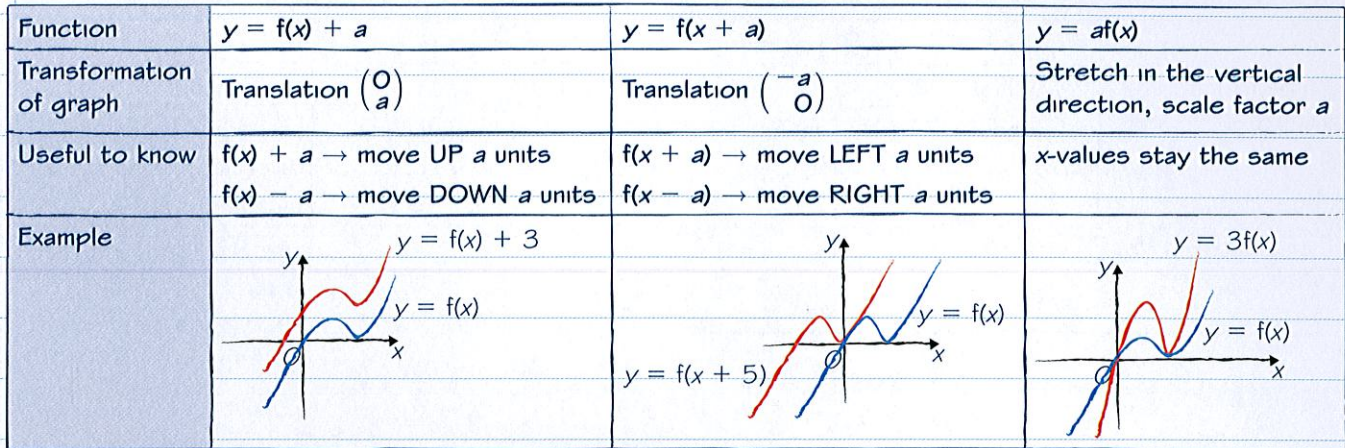 Function
y = f(x) + a
y = f(x + a)
y = af(x)
Transformation
of graph
Translation (0 a)
Translation (−a 0)
Stretch in the vertical
direction, scale factor a
Useful to know
f(x) + a → move UP a units
f(x) − a → move DOWN a units
f(x + a) → move LEFT a units
f(x − a) → move RIGHT a units
x-values stay the same
Example
y = f(x) + 3
y
y = f(x)
O
x
y
y = f(x)
O
x
y = f(x + 5)
y = 3f(x)
y
y = f(x)
O
x